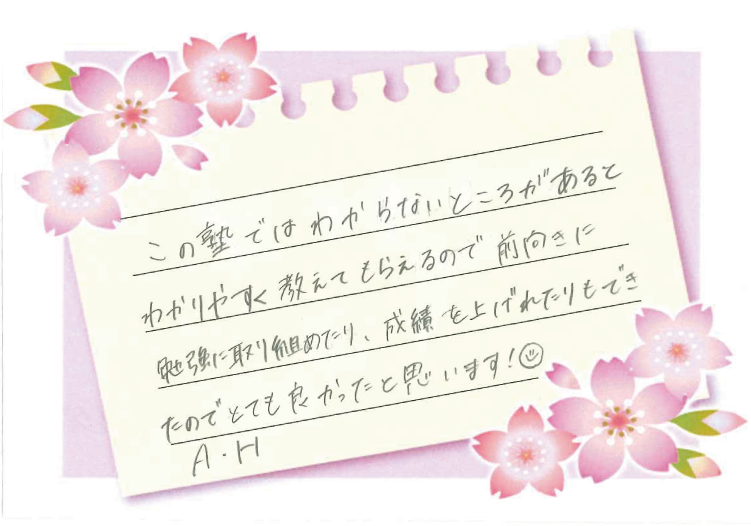 この塾ではわからないところがあると
わかりやすく教えてもらえるので前向きに
勉強に取り組めたり、成績を上げれたりもでき
たのでとても良かったと思います!☺
A・H